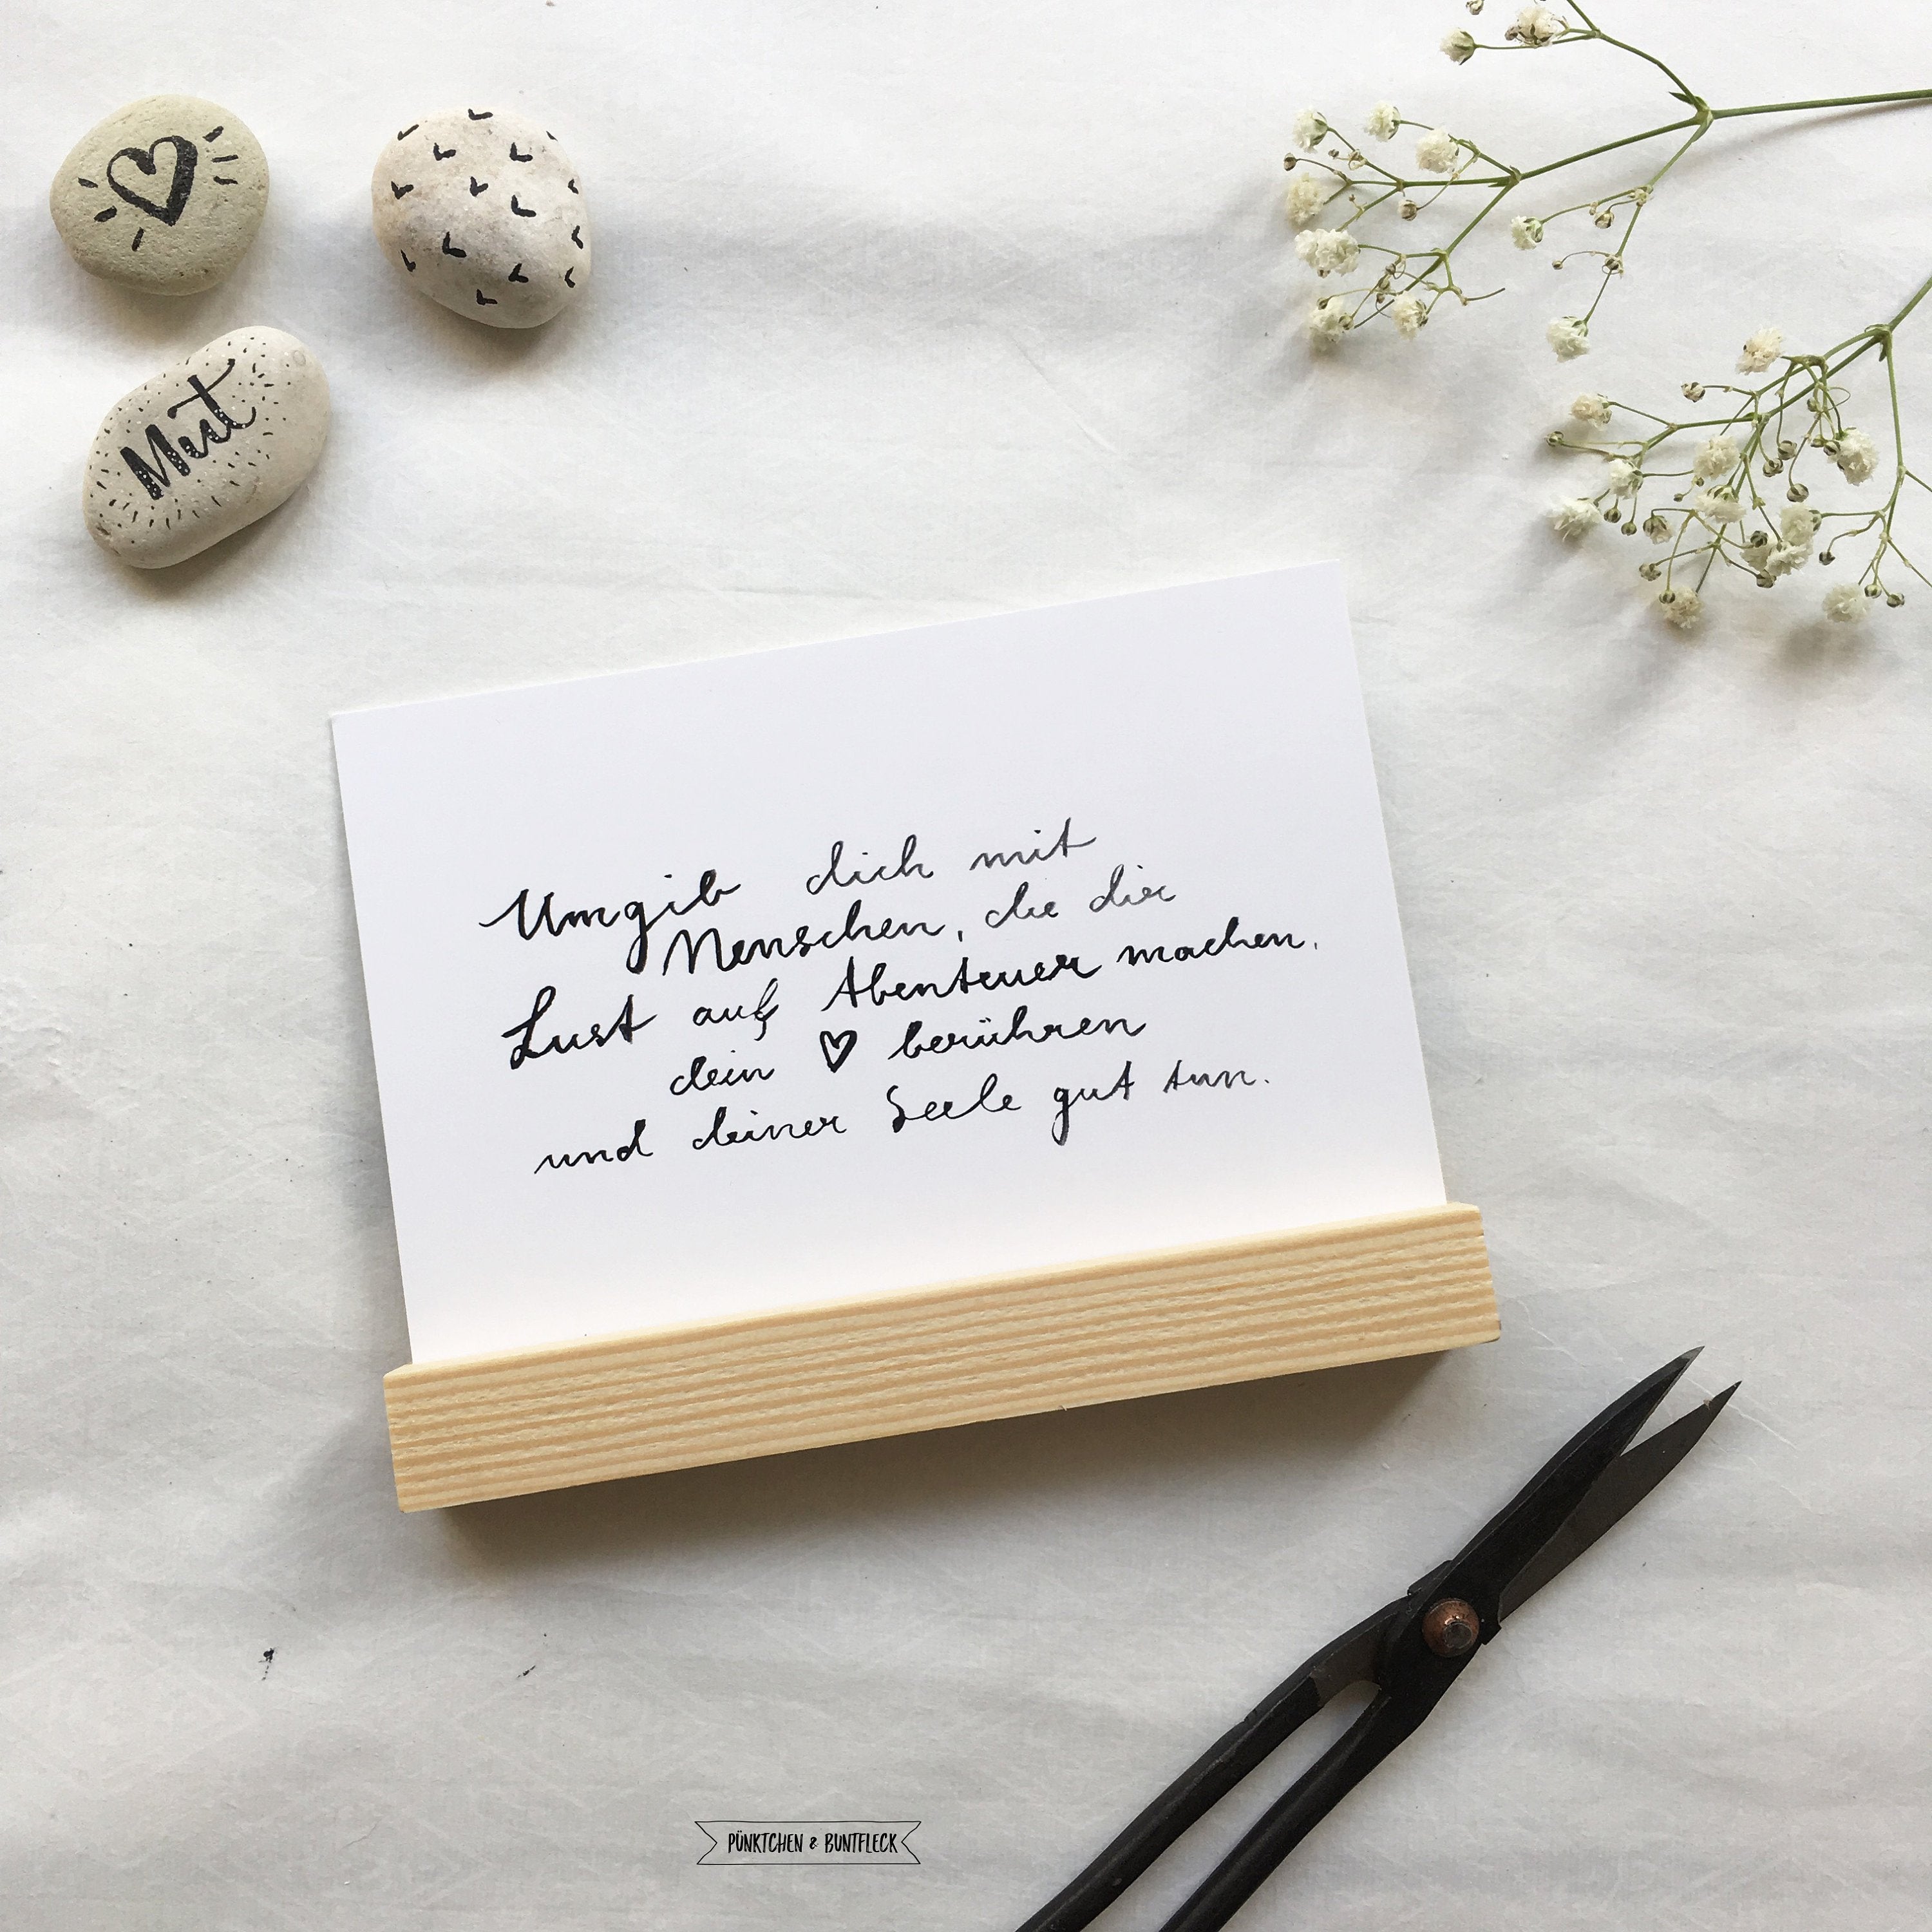 Mut
Umgib dich mit
Menschen, die dir
Lust auf Abenteuer machen,
dein ♡ berühren
und deiner Seele gut tun.
PÜNKTCHEN & BUNTFLECK